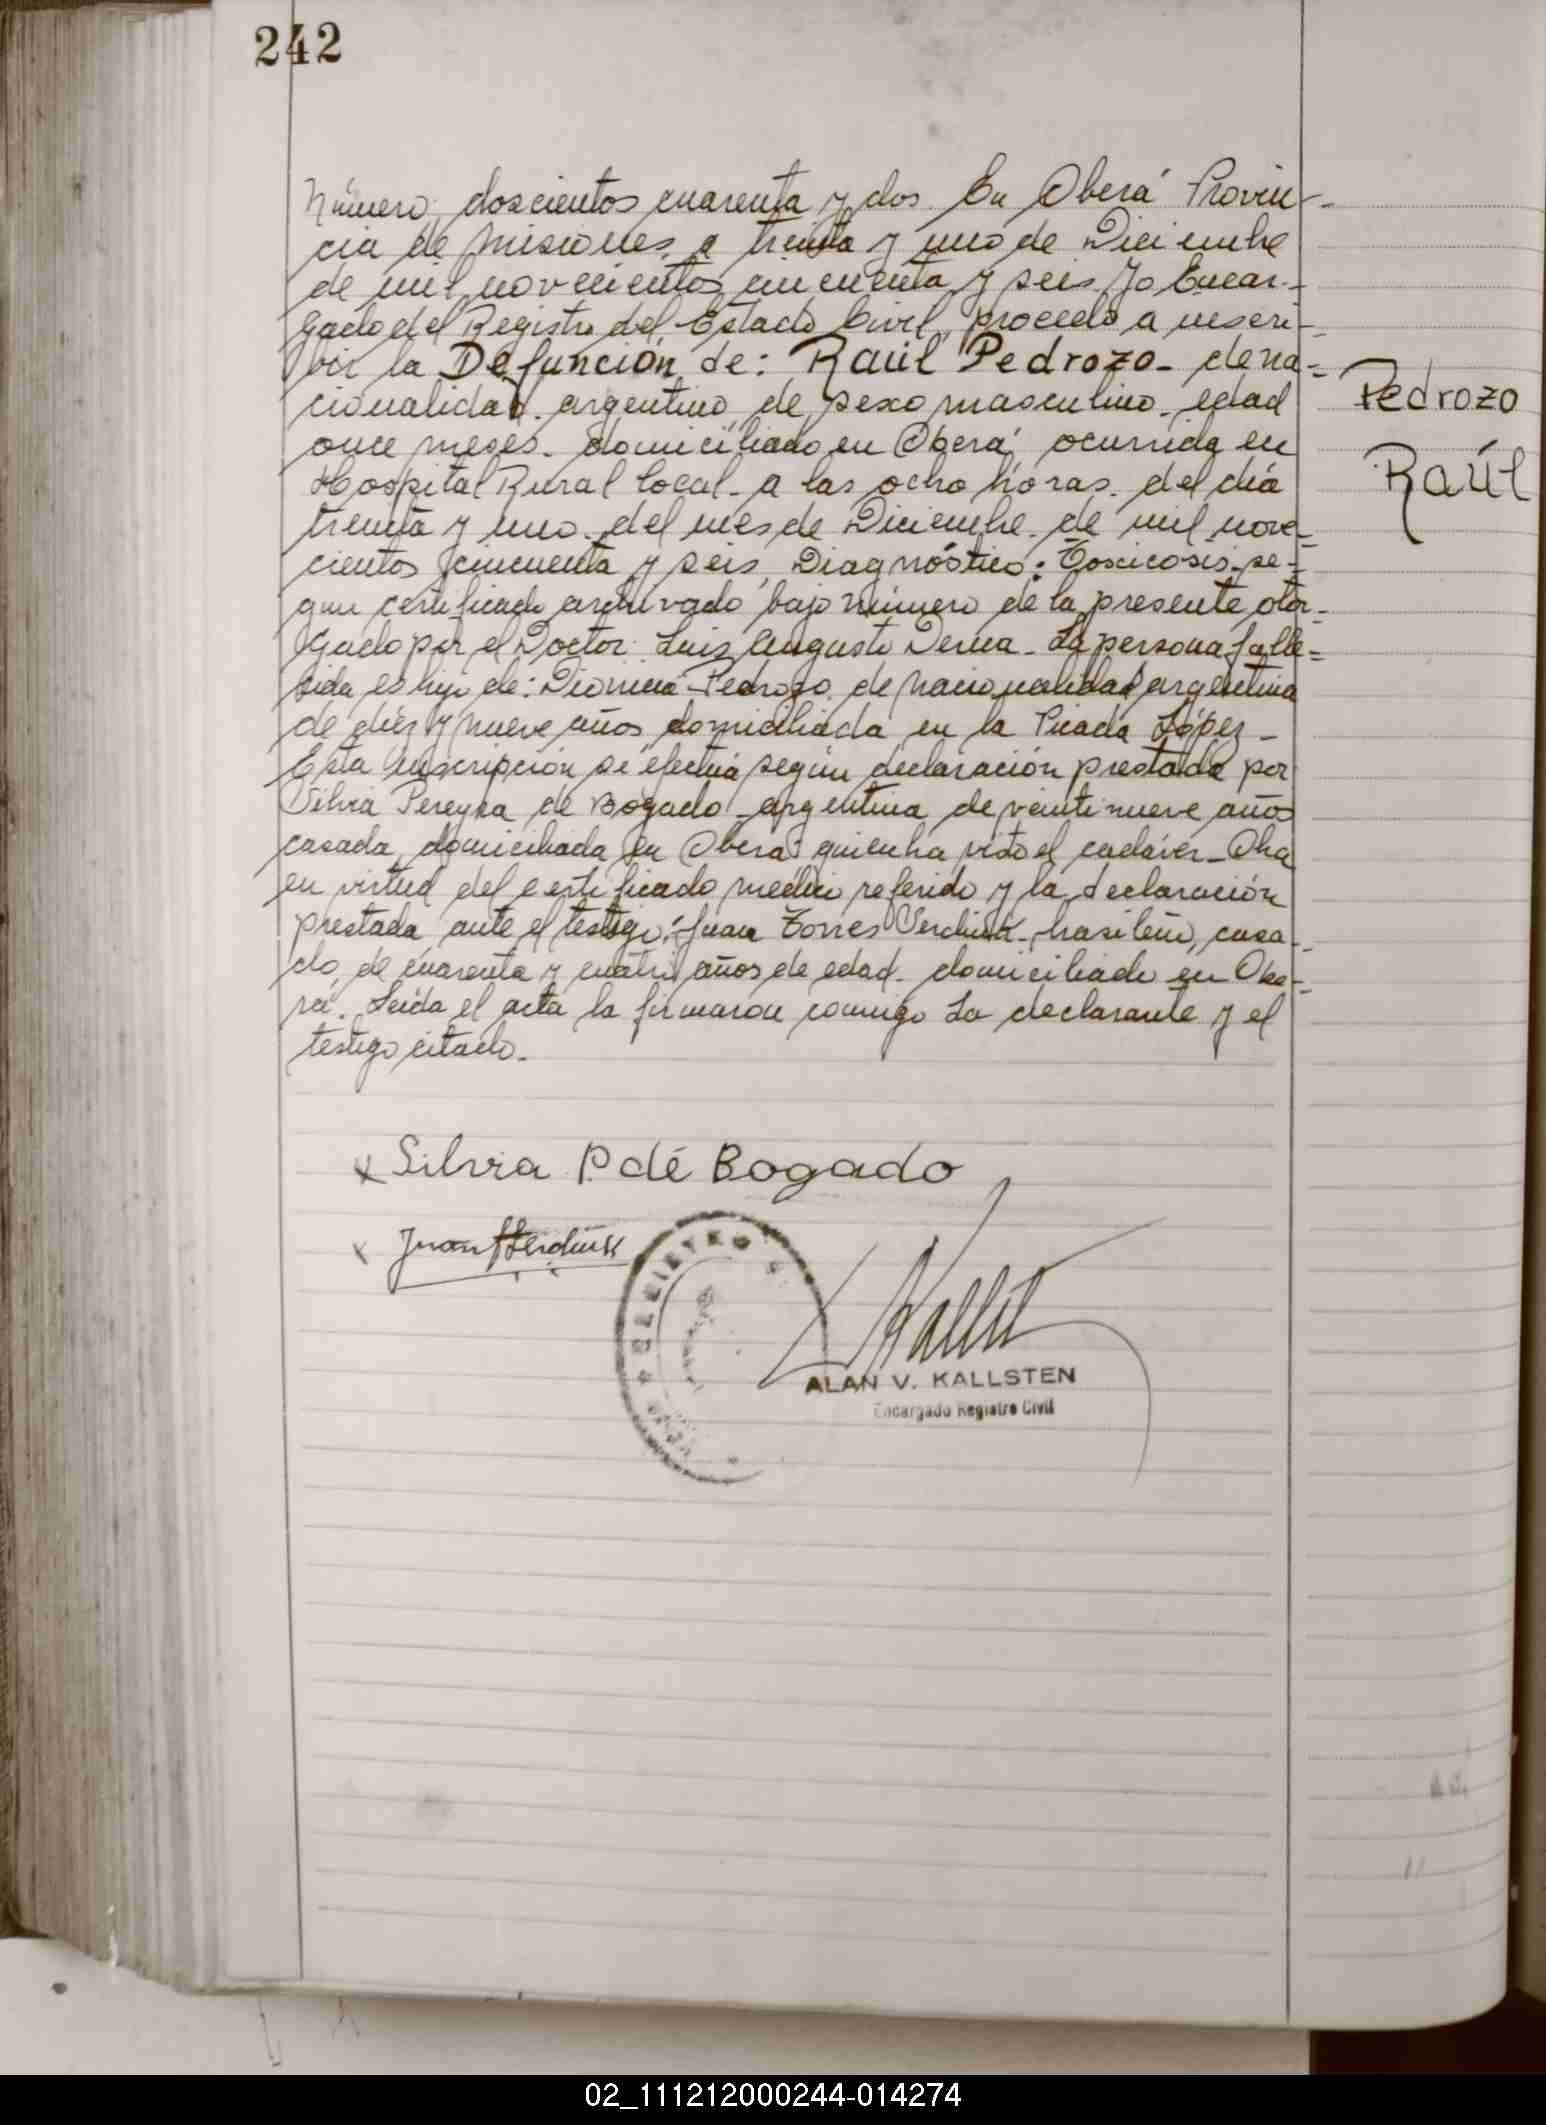 242
Número doscientos cuarenta y dos. En Oberá Provin-
cia de Misiones, a treinta y uno de Diciembre
de mil novecientos cincuenta y seis. Yo Encar-
gado del Registro del Estado Civil, procedo a inscri-
vir la Defunción de: Raúl Pedrozo- de na-
cionalidad argentino de sexo masculino- edad
once meses- domiciliado en Oberá ocurrida en
Hospital Rural local- a las ocho horas- del día
treinta y uno del mes de Diciembre de mil nove-
cientos cincuenta y seis, Diagnóstico: Toxicosis- se-
gun certificado archivado bajo número de la presente otor-
gado por el Doctor: Luis Augusto Derna- La persona falle-
sida es hijo de: Pedrozo de nacionalidad argentina
de diez y nueve años domiciliada en la Picada López-
Esta inscripción se efectúa según declaración prestada por
Silvia Pereyra de Bogado- argentina de veintinueve años
casada, domiciliada en Oberá quien ha visto el cadáver-
en virtud del certificado médico referido y la declaración
prestada ante el testigo: Juan Torres brasileño, casa-
do, de cuarenta y cuatro años de edad- domiciliado en Obe-
rá. Leída el acta la firmaron conmigo La declarante y el
testigo citado-
Pedrozo
Raúl
x Silvia P. de Bogado
x Juan
ALAN V. KALLSTEN
Encargado Registro Civil
02_111212000244-014274